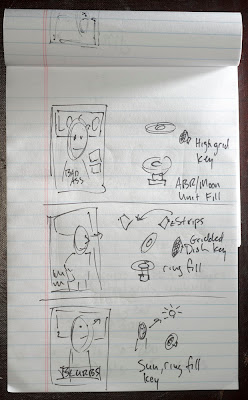 LOGO
BAD
ASS
High grid
key
ABR/Moon
Unit Fill
2 Strips
Gridded
Dish key
ring fill
BLURBS!
Sun, ring fill
key